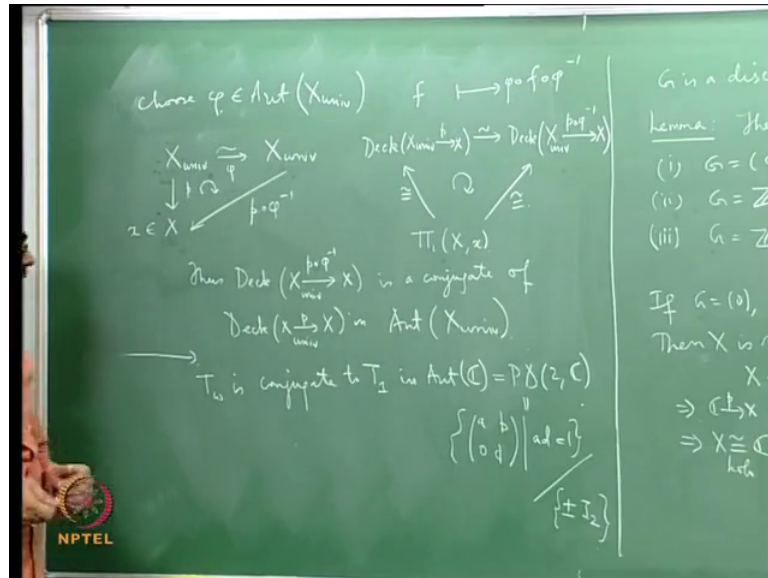 choose φ ∈ Aut (X_univ)    f ⟼ φ∘f∘φ⁻¹
X_univ ≅→_φ X_univ    Deck(X_univ –p→ X) ≃→ Deck(X_univ –p∘φ⁻¹→ X)
↓ p ↻    p∘φ⁻¹    ≅ ↻ ≅
x ∈ X    Π₁(X,x)
Then Deck (X_univ –p∘φ⁻¹→ X) is a conjugate of
Deck(X_univ –p→ X) in Aut (X_univ)
⟶ T_ω is conjugate to T_1 in Aut(ℂ) = PΔ(2, ℂ)
‖
{(a b
0 d) | ad=1}
/ {± I_2}
G is a disc
Lemma: The
(i) G = (
(ii) G = ℤ
(iii) G = ℤ
If G = (0),
Then X is
X
⇒ ℂ –p→ X
⇒ X ≅ ℂ
holo
NPTEL